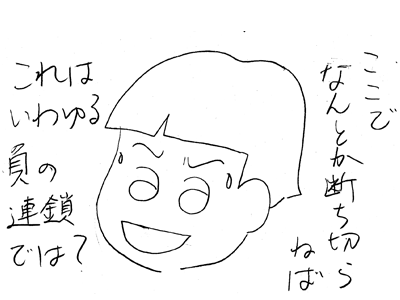 ここで
なんとか断ち切ら
ねば
これは
いわゆる
負の
連鎖
では？